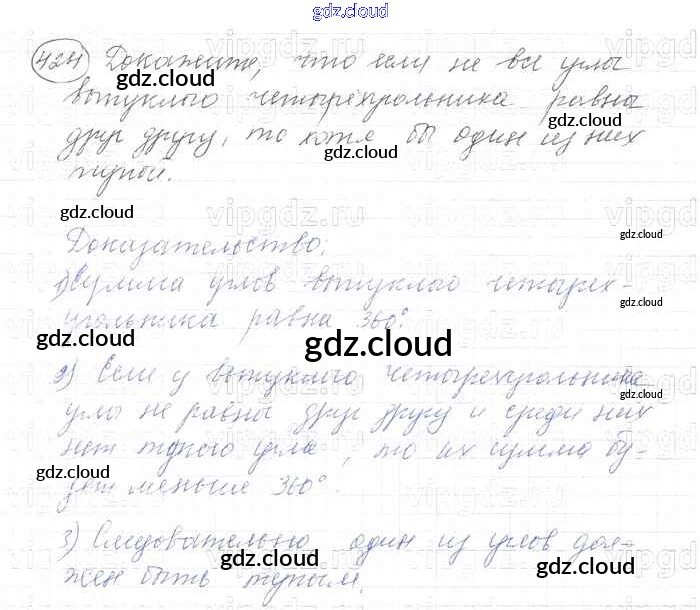 gdz.cloud
424 Докажите, что если не все углы
gdz.cloud
выпуклого четырёхугольника равны
gdz.cloud
друг другу, то хотя бы один из них
gdz.cloud
тупой.
gdz.cloud
vipgdz.ru
Доказательство:
gdz.cloud
1) Сумма углов выпуклого четырех-
gdz.cloud
угольника равна 360°.
gdz.cloud
gdz.cloud
2) Если у выпуклого четырехугольника
gdz.cloud
углы не равны друг другу и среди них
нет тупого угла, то их сумма бу-
gdz.cloud
дет меньше 360°.
3) Следовательно один из углов дол-
gdz.cloud
gdz.cloud
жен быть тупым.